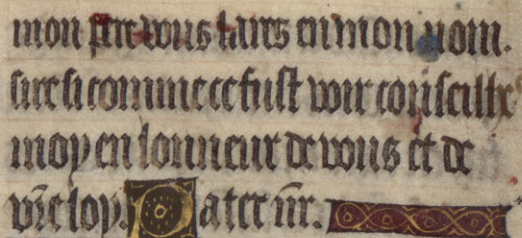 mon pere vous lairs en mon nom.
sire si comme ce fust voir conseilliez
moy en lonneur de vous et de
vr̃e loy. Pater nr̃.